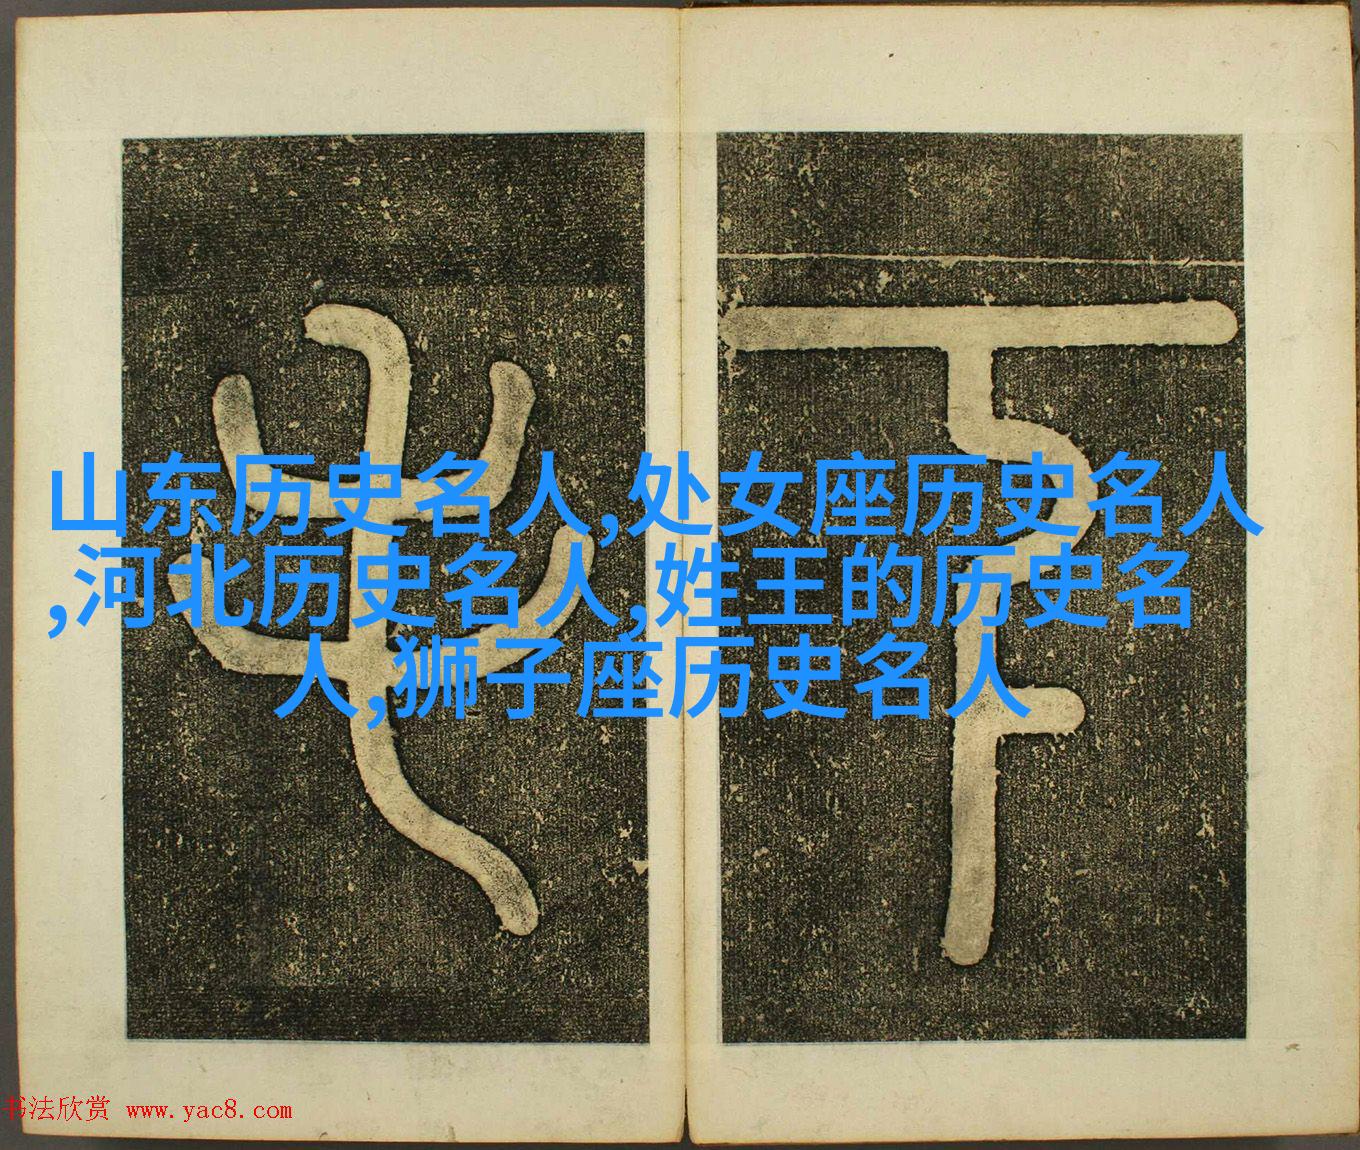 山东历史名人,处女座历史名人
,河北历史名人,姓王的历史名
人,狮子座历史名人
书法欣赏 www.yac8.com